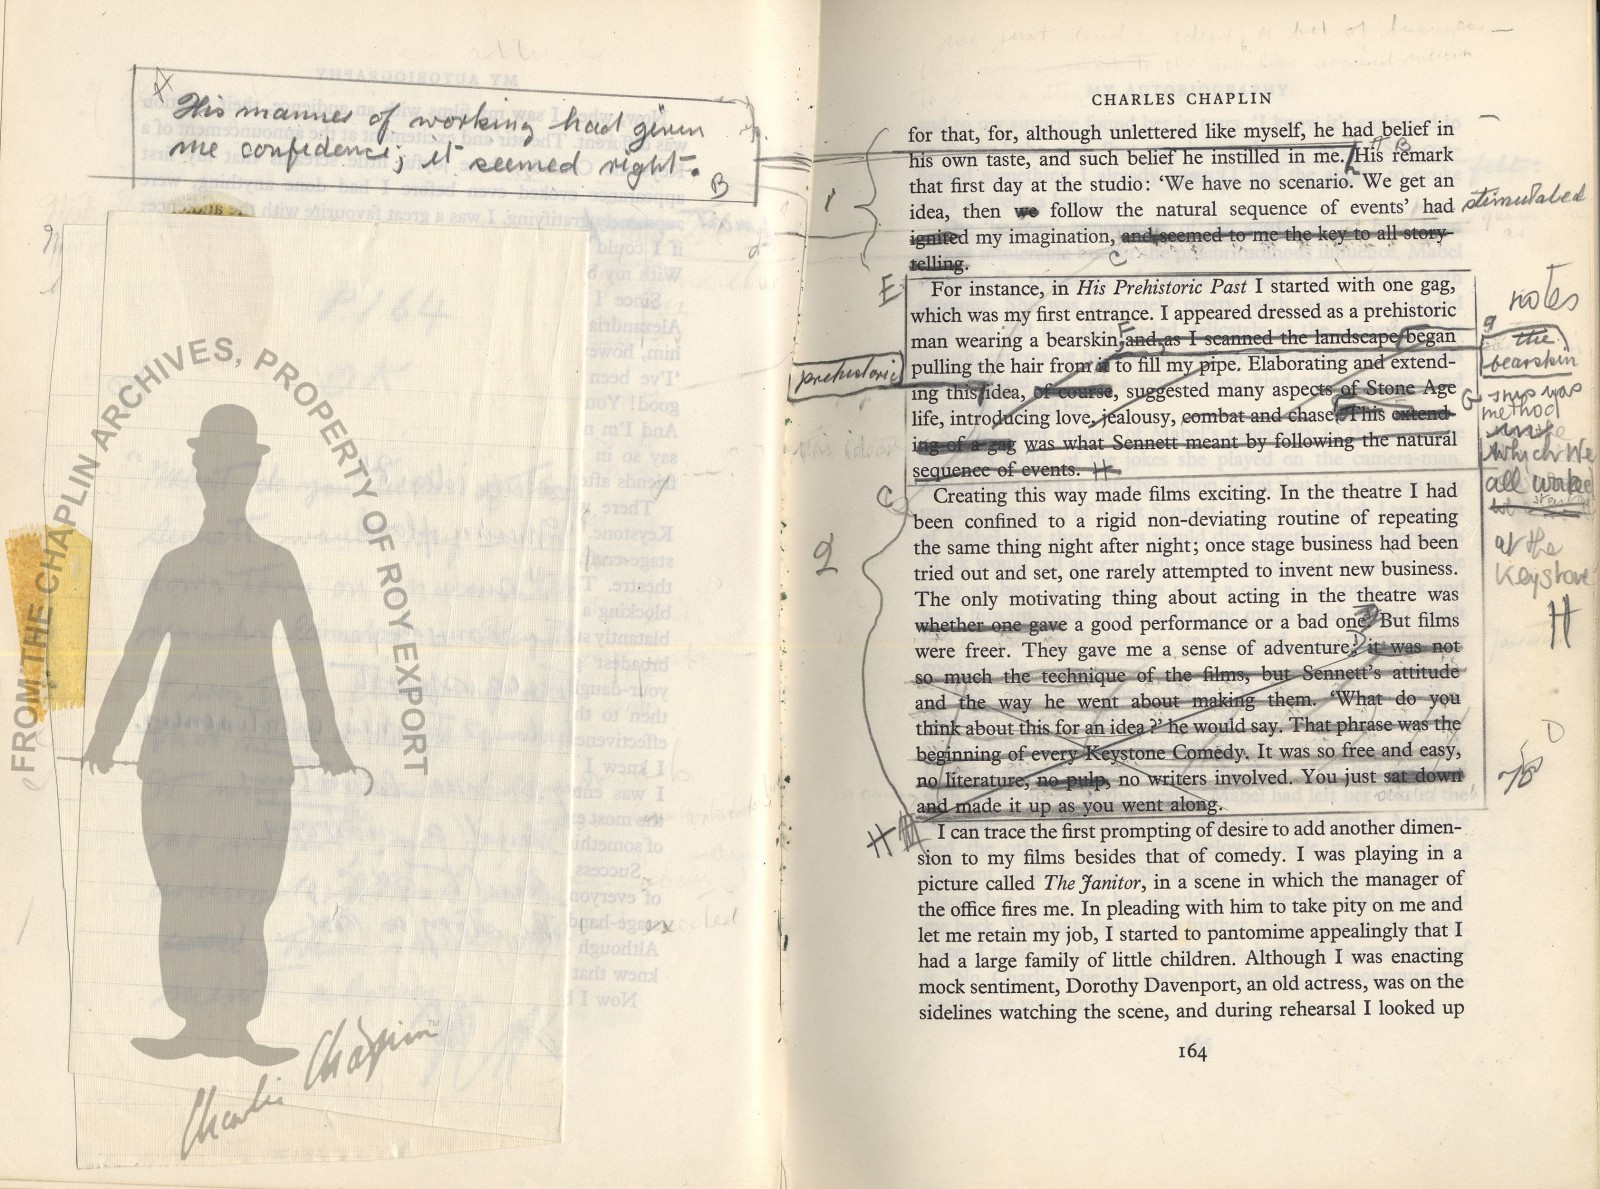 His manner of working had given
me confidence; it seemed right.
B
P. 164
FROM THE CHAPLIN ARCHIVES, PROPERTY OF ROY EXPORT
Charlie Chaplin
CHARLES CHAPLIN
for that, for, although unlettered like myself, he had belief in
his own taste, and such belief he instilled in me. His remark
that first day at the studio: ‘We have no scenario. We get an
idea, then we follow the natural sequence of events’ had
stimulated
ignited my imagination, and seemed to me the key to all story-
telling.
1
E
For instance, in His Prehistoric Past I started with one gag,
which was my first entrance. I appeared dressed as a prehistoric
man wearing a bearskin, and, as I scanned the landscape, began
pulling the hair from it to fill my pipe. Elaborating and extend-
ing this idea, of course, suggested many aspects of Stone Age
life, introducing love, jealousy, combat and chase. This extend-
ing of a gag was what Sennett meant by following the natural
sequence of events. H
prehistoric
notes
the
bearskin
G
method
which we
all worked
at the
Keystone
H
C
2
Creating this way made films exciting. In the theatre I had
been confined to a rigid non-deviating routine of repeating
the same thing night after night; once stage business had been
tried out and set, one rarely attempted to invent new business.
The only motivating thing about acting in the theatre was
whether one gave a good performance or a bad one. But films
were freer. They gave me a sense of adventure; it was not
so much the technique of the films, but Sennett’s attitude
and the way he went about making them. ‘What do you
think about this for an idea?’ he would say. That phrase was the
beginning of every Keystone Comedy. It was so free and easy,
no literature, no pulp, no writers involved. You just sat down
and made it up as you went along.
D
H
I can trace the first prompting of desire to add another dimen-
sion to my films besides that of comedy. I was playing in a
picture called The Janitor, in a scene in which the manager of
the office fires me. In pleading with him to take pity on me and
let me retain my job, I started to pantomime appealingly that I
had a large family of little children. Although I was enacting
mock sentiment, Dorothy Davenport, an old actress, was on the
sidelines watching the scene, and during rehearsal I looked up
164